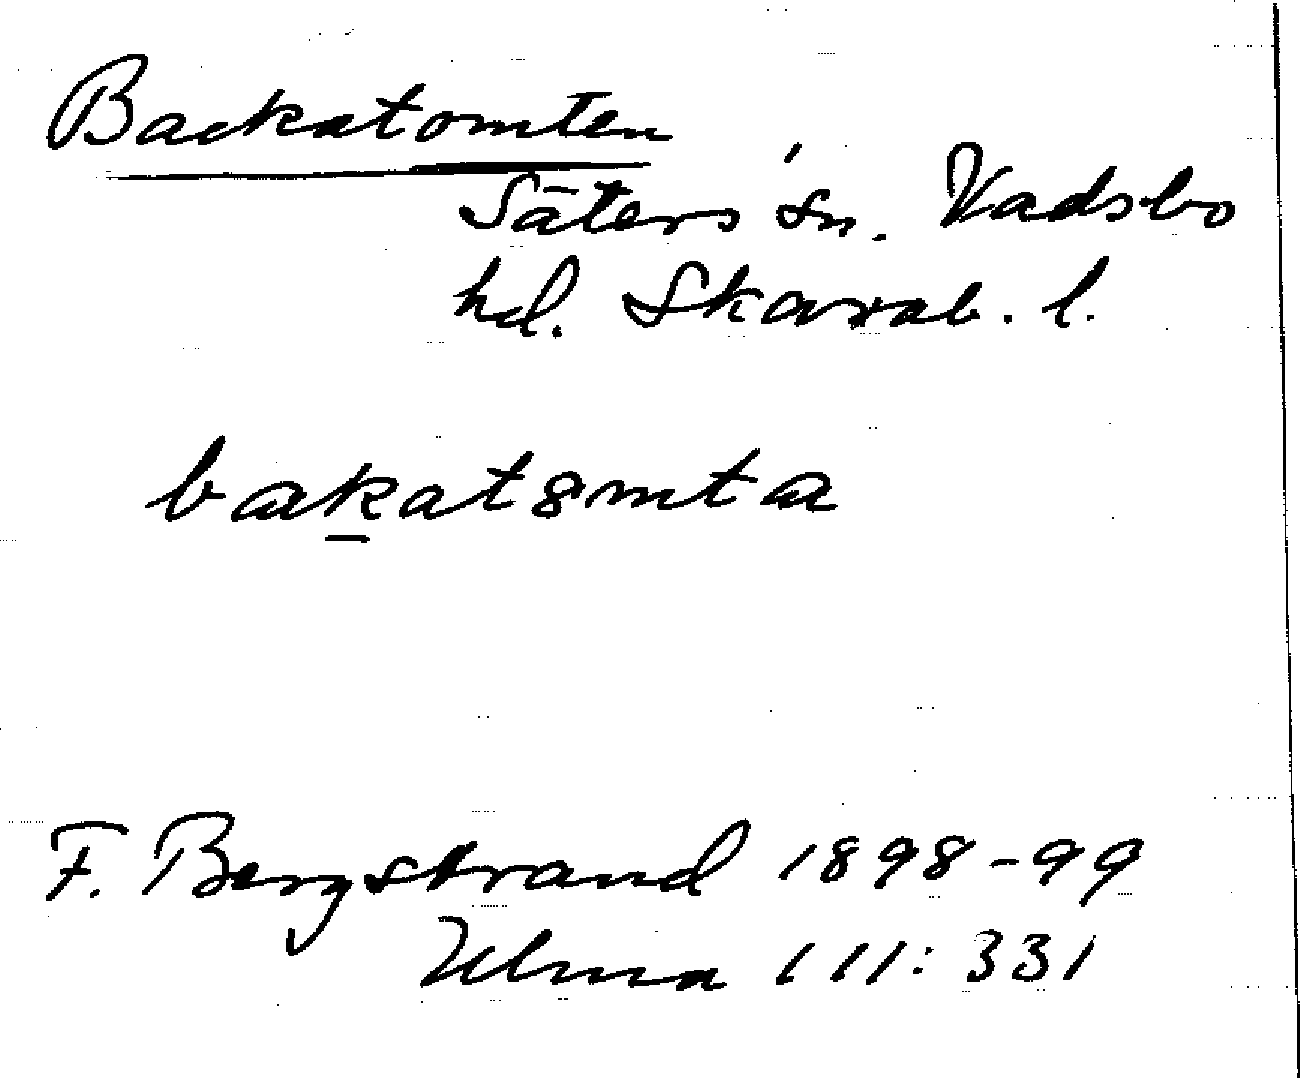 Backatomten
Säters sn. Vadsbo
hd. Skarab. l.
bakatomta
F. Bergstrand 1898-99
Ulma 111:331